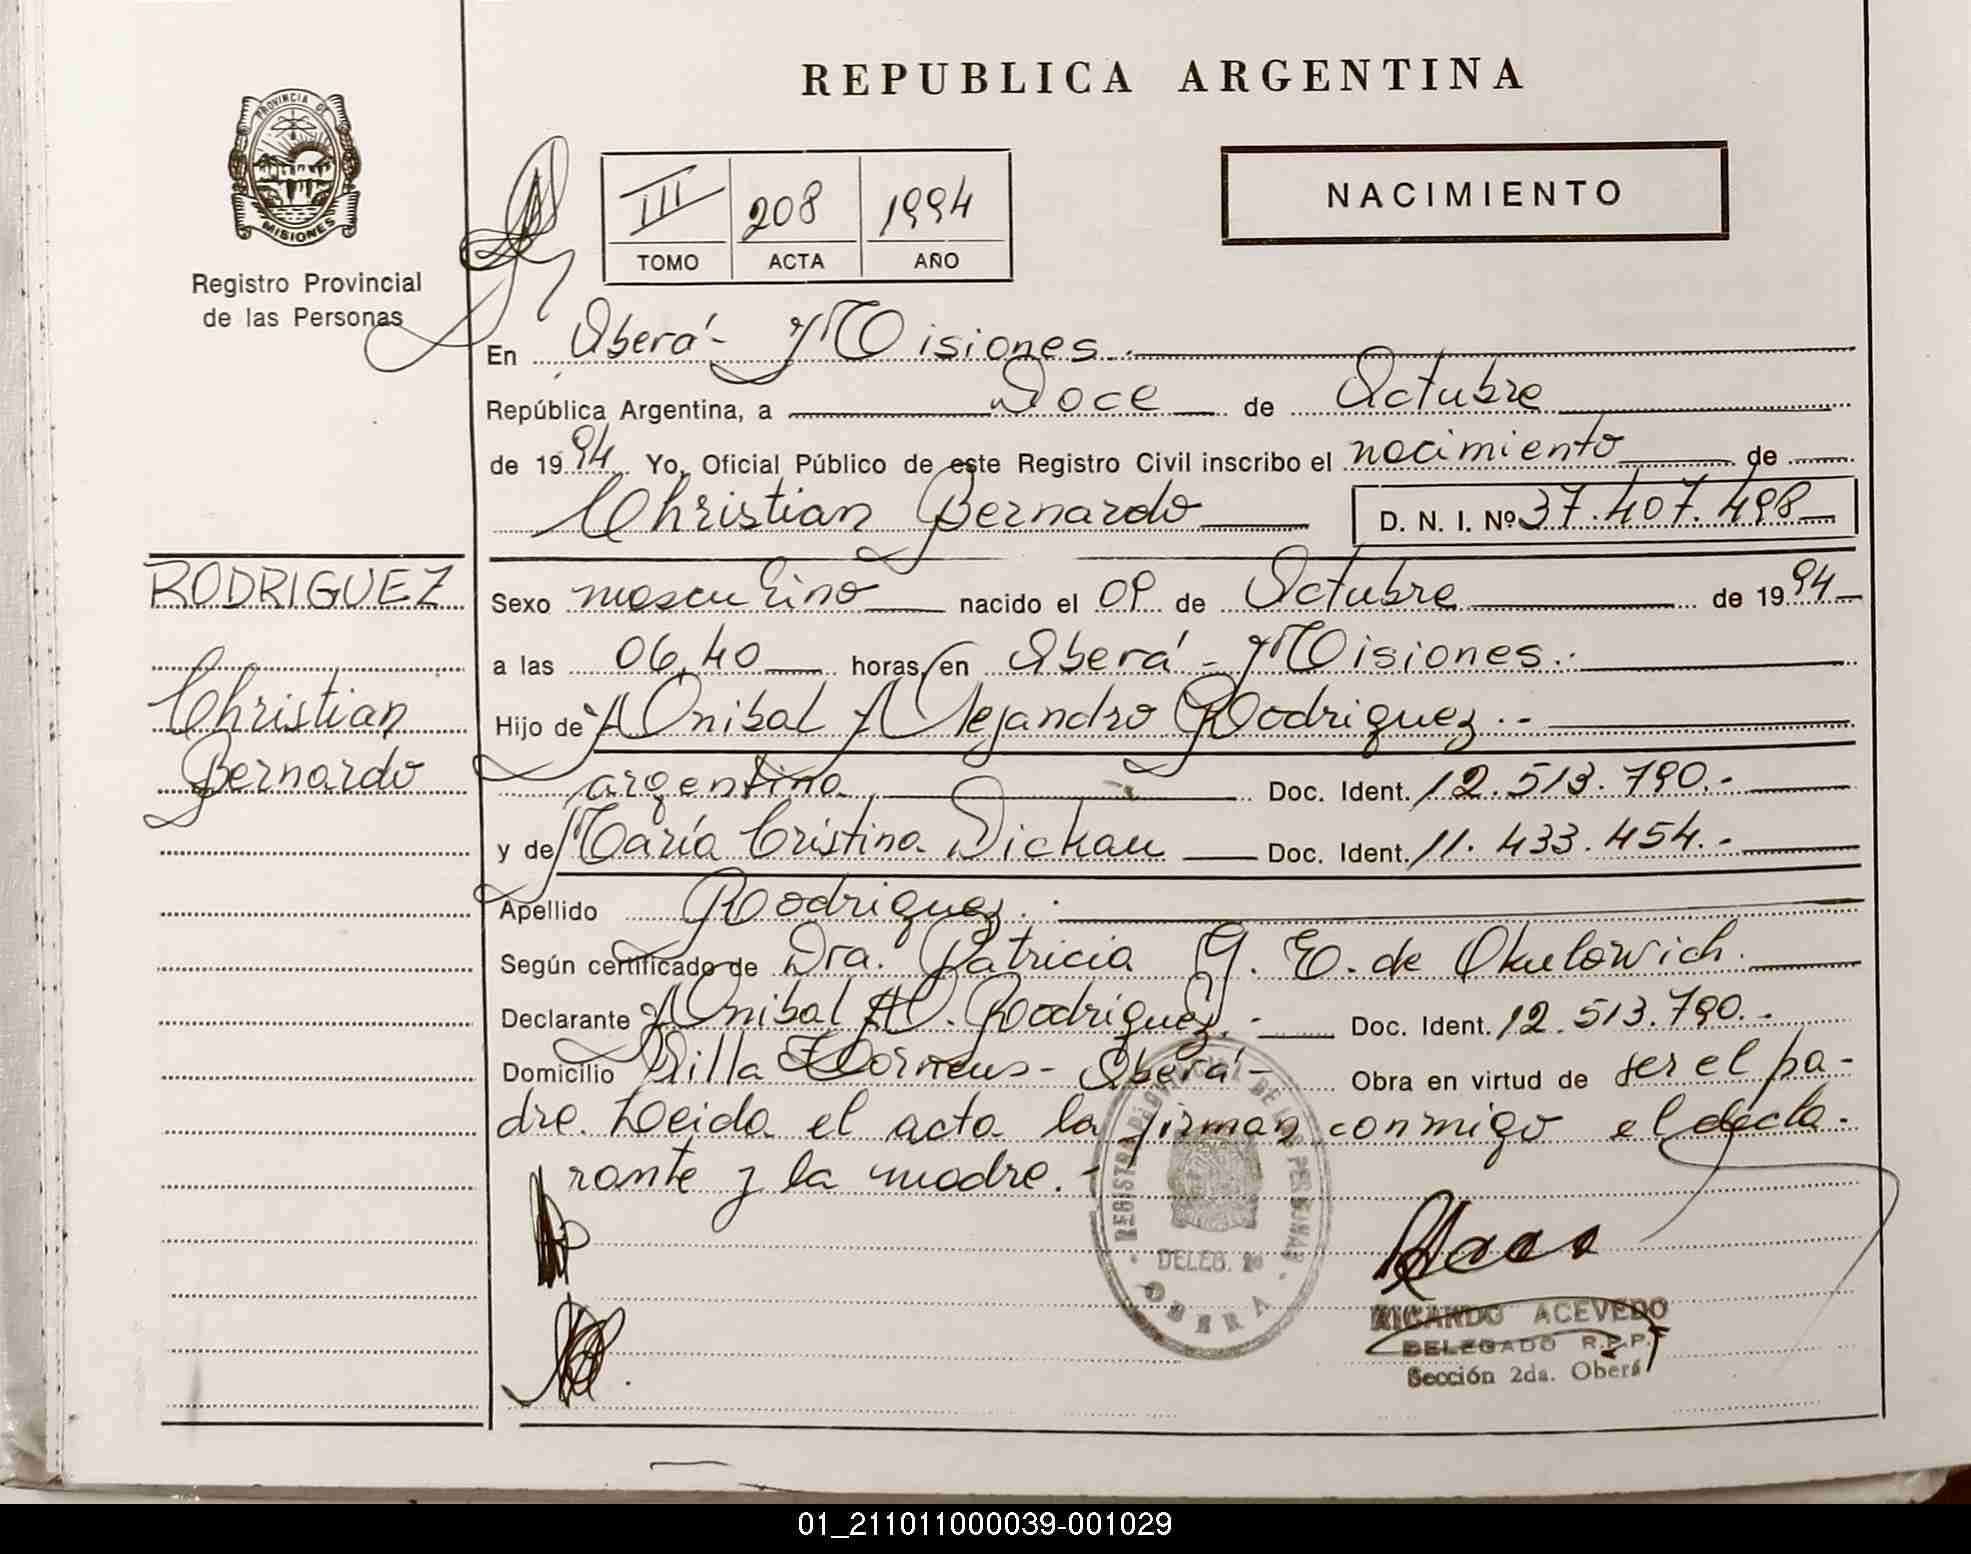 REPUBLICA ARGENTINA
PROVINCIA DE
MISIONES
Registro Provincial
de las Personas
III 208 1994
TOMO ACTA AÑO
NACIMIENTO
En Oberá - Misiones.
República Argentina, a Doce de Octubre
de 1994 Yo, Oficial Público de este Registro Civil inscribo el nacimiento de
Christian Bernardo D. N. I. Nº 37.407.498
RODRIGUEZ
Christian
Bernardo
Sexo masculino nacido el 09 de Octubre de 1994
a las 06,40 horas, en Oberá - Misiones.
Hijo de Anibal Alejandro Rodriguez.-
argentino Doc. Ident. 12.513.790.-
y de María Cristina Dickau Doc. Ident. 11.433.454.-
Apellido Rodriguez.
Según certificado de Dra. Patricia G. E. de Okulovich.
Declarante Anibal A. Rodriguez.- Doc. Ident. 12.513.790.-
Domicilio Villa - Oberá - Obra en virtud de ser el pa-
dre. Leida el acta la firman conmigo el decla-
rante y la madre.-
REGISTRO PROVINCIAL DE LAS PERSONAS
DELEG. 2a
OBERA
RICARDO ACEVEDO
DELEGADO R.P.P.
Sección 2da. Oberá
01_211011000039-001029